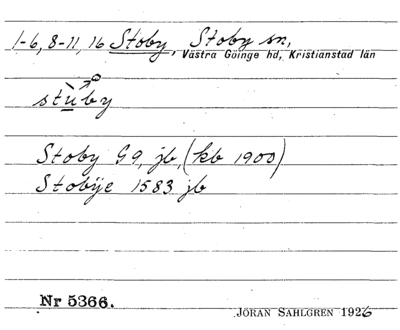 1-6, 8-11, 16 Stoby, Stoby sn,
Västra Göinge hd, Kristianstad län
stùby
Stoby G9, jb, (kb 1900)
Stobÿe 1583 jb
Nr 5366.
JÖRAN SAHLGREN 1926